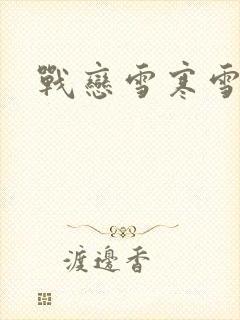 戰戀雪寒雪
渡邊香